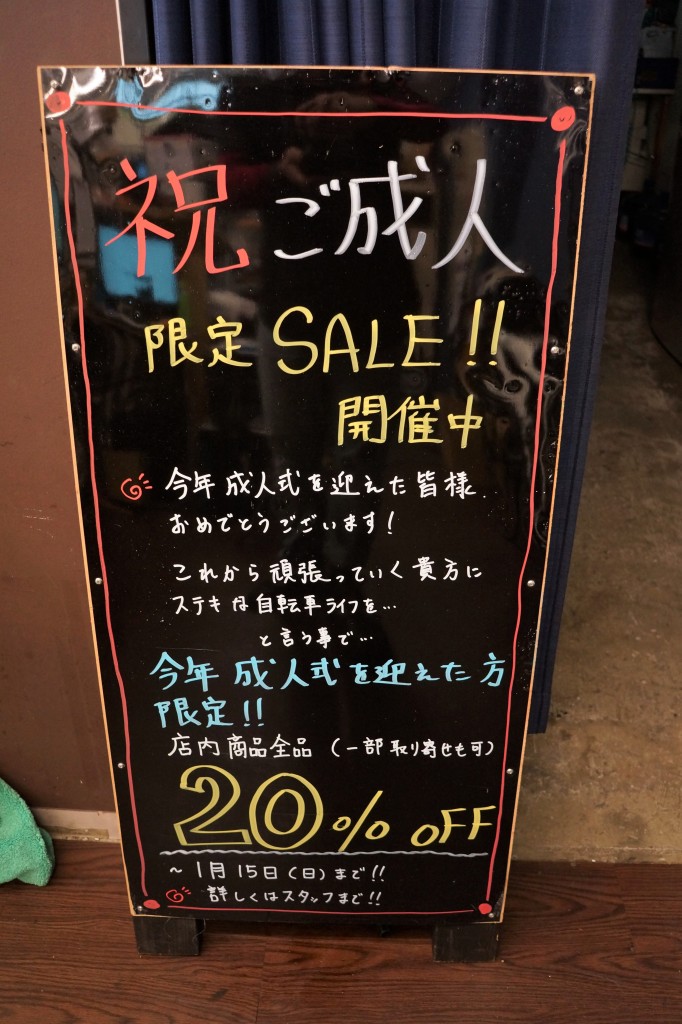 祝ご成人
限定 SALE!!
開催中
今年成人式を迎えた皆様
おめでとうございます!
これから頑張っていく貴方に
ステキな自転車ライフを…
と言う事で…
今年成人式を迎えた方
限定!!
店内商品全品(一部取り寄せも可)
20% OFF
~1月15日(日)まで!!
詳しくはスタッフまで!!